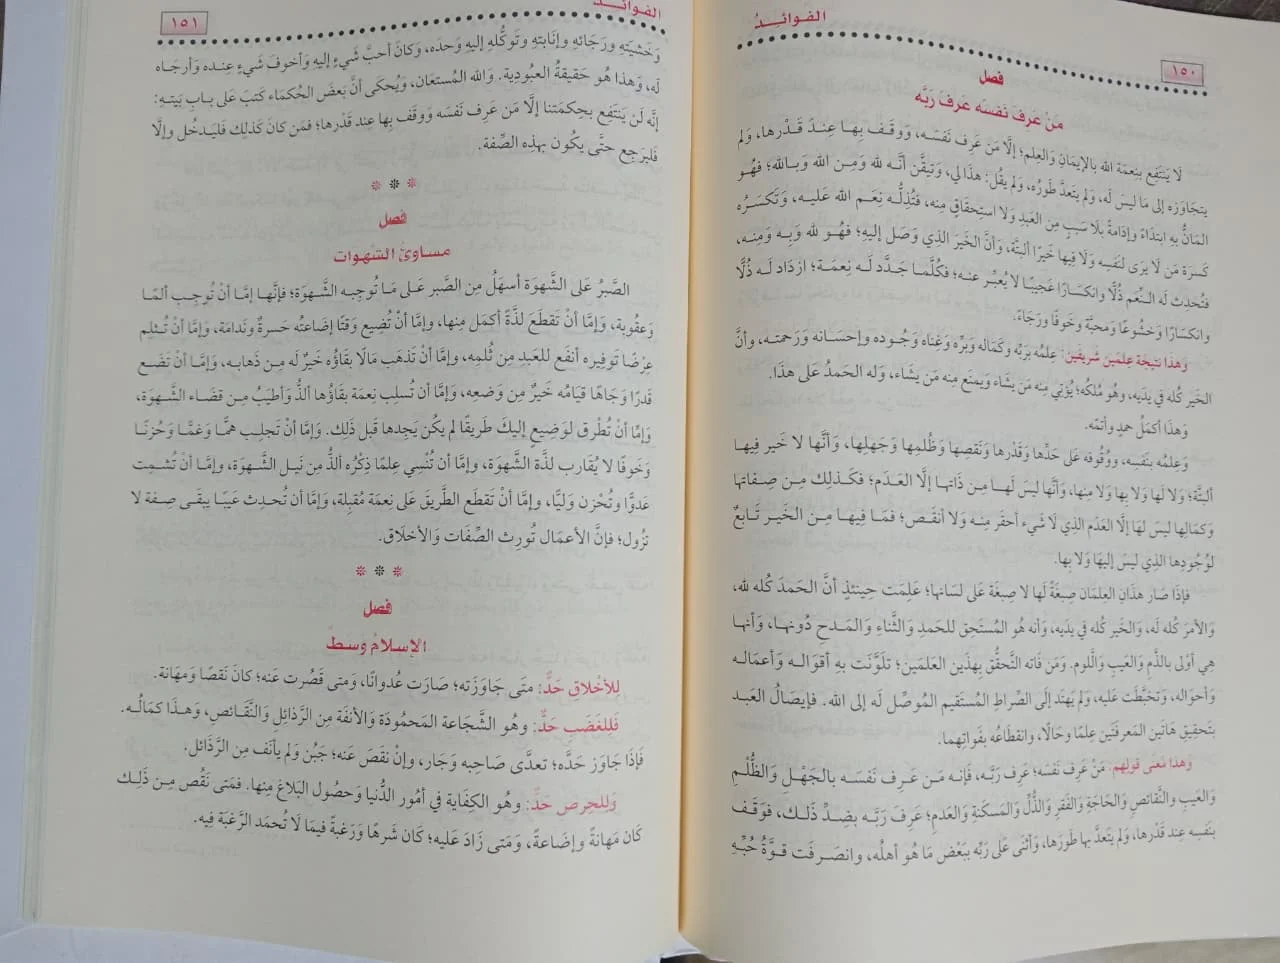 الفوائد
١٥٠
فصل
مَنْ عَرفَ نفسَه عَرفَ رَبَّه
لَا يَنتَفِع بنِعمَة الله بالإيمَانِ والعِلم؛ إلَّا مَن عَرِف نَفسَه، ووَقَف بِهَا عِندَ قَدْرها، ولم
يتجَاوَزه إلى مَا ليسَ لَه، ولم يتعدَّ طَورَه، ولم يقُل: هذَا لي، وتيقَّن أنَّه لله ومِن الله وبالله؛ فهُو
المَانُّ بهِ ابتدَاءً وإدَامةً بلَا سَببٍ مِن العَبدِ ولَا استِحقَاق مِنه، فتُذِلُّه نِعَم الله عَليه، وتَكسِرُه
كَسرَة مَن لَا يرَى لنَفسِه ولَا فيهَا خَيرًا ألبتَّة، وأنَّ الخَيرَ الذِي وَصَل إليهِ؛ فهُو لله وَبِه وَمِنه،
فتُحدِث لَه النِّعَم ذُلًّا وانكسَارًا عَجيبًا لا يُعبَّر عنه؛ فكُلَّمَا جَدَّد لَه نِعمَة؛ ازدَاد لَه ذُلًّا
وانكِسَارًا وَخشُوعًا وَمحبَّة وخَوفًا ورَجَاءً.
وهذَا نتيجَة عِلمَين شَريفَين: عِلمُه برَبِّه وكَمَاله وبَرِّه وغِنَاه وَجُوده وإحسَانه وَرَحمتِه، وأنَّ
الخَير كُله فِي يدَيه، وهُو مُلكُه؛ يُؤتِي مِنه مَن يشَاء وَيمنَع مِنه مَن يشَاء، ولَه الحَمدُ عَلى هذَا.
وهَذا أكمَلُ حمدٍ وأتمّه.
وعِلمُه بنَفسِه، ووُقُوفه عَلى حَدِّها وقَدْرها ونَقصِهَا وظُلمِها وجَهلِها، وأنَّها لَا خَير فِيهَا
ألبتَّة؛ ولَا لهَا ولَا بِها ولَا مِنها، وأنَّها ليسَ لَهَا مِن ذَاتِها إلَّا العَدَم؛ فكَذلِك مِن صِفاتهَا
وَكمَالِها ليسَ لهَا إلَّا العَدَم الذِي لَا شَيء أحقَر مِنه ولَا أنقَص؛ فمَا فِيهَا مِن الخَير تَابعٌ
لوُجُودِها الذِي لَيسَ إليهَا وَلا بها.
فإذَا صَار هذَانِ العِلمَان صِبغَةً لَها لا صِبغَة عَلى لسَانهَا؛ عَلِمَت حِينئذٍ أنَّ الحَمدَ كُله لله،
والأمرَ كُله لَه، والخَير كُله في يدَيه، وأنه هُو المُستَحِق للحَمدِ والثَّناءِ والمَدحِ دُونهَا، وأنَّها
هِي أَوْلى بالذَّمِ والعَيبِ واللَّوم. ومَن فَاته التَّحقُّق بهذَين العَلمَين؛ تلَوَّنَت بِهِ أقوَالُه وأعمَالُه
وأحوَاله، وتخبَّطَت عَليه، ولم يهتَد إلَى الصِّراطِ المُستَقيم المُوصِّل لَه إلى الله. فإيصَالُ العَبد
بتَحقِيق هَاتَين المَعرفَتَين عِلمًا وحَالًا، وانقطَاعُه بفَواتِهمَا.
وهَذا مَعنى قَولهم: مَنْ عَرِف نَفسَه؛ عَرِف رَبَّه، فإنه مَن عَرِف نَفسَه بالجَهْلِ والظُّلْمِ
والعَيبِ والنَّقائصِ والحَاجَةِ والفَقرِ والذُّلِّ والمَسكَنةِ والعَدمِ؛ عَرفَ رَبَّه بضِدِّ ذَلكَ، فوَقَف
بنَفسِه عِند قَدْرها، ولم يتَعدَّ بها طَورَها، وأثنَى عَلى رَبِّه ببَعْضِ مَا هُو أهلُه، وانصَرفَت قوَّةُ حُبِّهِ
الفوائد
١٥١
وَخشيَتِه ورَجَائهِ وإنَابتِهِ وتَوكُّلِهِ إليهِ وَحدَه، وكَانَ أحبَّ شَيءٍ إليهِ وَأخوفَ شَيءٍ عِندَه وَأرجَاه
لَه، وَهذَا هُو حَقيقَةُ العبُودِية. والله المُستعَان، ويُحكَى أنَّ بعَضَ الحُكمَاء كتَبَ عَلى بابِ بَيتِهِ:
إنَّه لَن يَنتَفِع بحِكمَتنا إلَّا مَن عَرِف نَفسَه ووَقَف بِها عِند قَدْرها؛ فمَن كَان كَذلِك فَليَدخُل وإلَّا
فَليرَجِع حتَّى يكُون بهذِه الصِّفة.
فصل
مساوئ الشهوات
الصَّبرُ عَلى الشَّهوَة أسهَلُ مِن الصَّبر عَلى مَا تُوجِبه الشَّهوَة؛ فإنَّها إمَّا أنْ تُوجِب ألمًا
وَعقُوبة، وإمَّا أنْ تَقطَعَ لذَّةً أكمَل مِنها، وإمَّا أنْ تُضيع وَقتًا إضَاعتُه حَسرةٌ ونَدامَة، وإمَّا أنْ تُثلِم
عِرْضًا تَوفِيره أنفَع للعَبدِ مِن ثُلمِه، وإمَّا أنْ تَذهَب مَالًا بقَاؤُه خَيرٌ لَه مِن ذَهابِه، وإمَّا أنْ تَضَع
قَدرًا وَجَاهًا قيَامُه خَيرٌ مِن وَضعِه، وإمَّا أنْ تُسلِب نِعمَة بقَاؤُها ألذُّ وأطيَبُ مِن قَضَاء الشَّهوَة،
وَإمَّا أنْ تُطْرق لوَضِيعٍ إليكَ طَريقًا لم يكُن يَجِدها قَبل ذَلِك. وَإمَّا أنْ تَجلِب همًّا وَغمًّا وَحُزنًا
وَخَوفًا لَا يُقَارِب لذَّة الشَّهوَة، وإمَّا أن تُنْسِي عِلمًا ذِكْرُه ألذُّ مِن نَيل الشَّهوَة، وإمَّا أنْ تُشمِت
عَدوًّا وتُحْزِن وَليًّا، وإمَّا أنْ تَقطَع الطَّرِيقَ عَلى نِعمَة مُقبِلة، وإمَّا أنْ تُحدِث عَيبًا يبقَى صِفة لَا
تزُول؛ فإنَّ الأعمَال تُورِث الصِّفَات وَالأخلَاق.
فصل
الإسلام وسط
لِلأخْلاقِ حَدٌّ: متَى جَاوَزَته؛ صَارَت عُدوانًا، وَمتَى قَصُرت عَنه؛ كانَ نَقصًا وَمهَانة.
فَلِلغَضَبِ حَدٌّ: وهُو الشَّجَاعة المَحمُودَة وَالأنفَة مِن الرَّذائِلِ والنَّقَائصِ، وَهذَا كمَالُه.
فَإذَا جَاوَز حَدَّه؛ تعدَّى صَاحِبه وَجَار، وإنْ نقَصَ عَنه؛ جَبُن وَلم يأنَف مِن الرَّذَائل.
وَللحِرصِ حَدٌّ: وهُو الكِفَاية فِي أمُور الدُّنيا وَحصُول البَلاغِ مِنها. فمَتى نَقُص مِن ذَلِك
كَان مَهانةً وإضَاعةً، وَمتَى زَادَ عَليه؛ كَان شَرهًا وَرَغبةً فيمَا لَا تُحمَد الرَّغبَة فِيه.